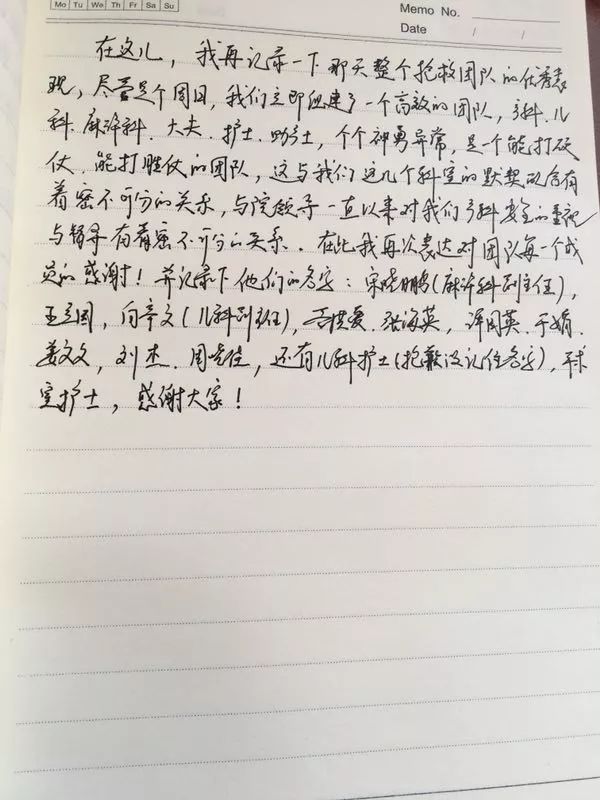 Mo Tu We Th Fr Sa Su
Memo No.
Date / /
在这儿，我再记录一下那天整个抢救团队的优秀表
现，尽管是个周日，我们立即组建了一个高效的团队，产科、儿
科、麻醉科、大夫、护士、助产士，个个神勇异常，是一个能打硬
仗、能打胜仗的团队，这与我们这几个科室的默契配合有
着密不可分的关系，与院领导一直以来对我们产科安全的重视
与督导有着密不可分的关系。在此我再次表达对团队每一个成
员的感谢！并记录下他们的名字：宋晓鹏（麻醉科副主任），
王立国，向章文（儿科副主任），张海英，谭国英、于娟、
姜文文，刘杰、周，还有儿科护士（抱歉没记住名字），手术
室护士，感谢大家！